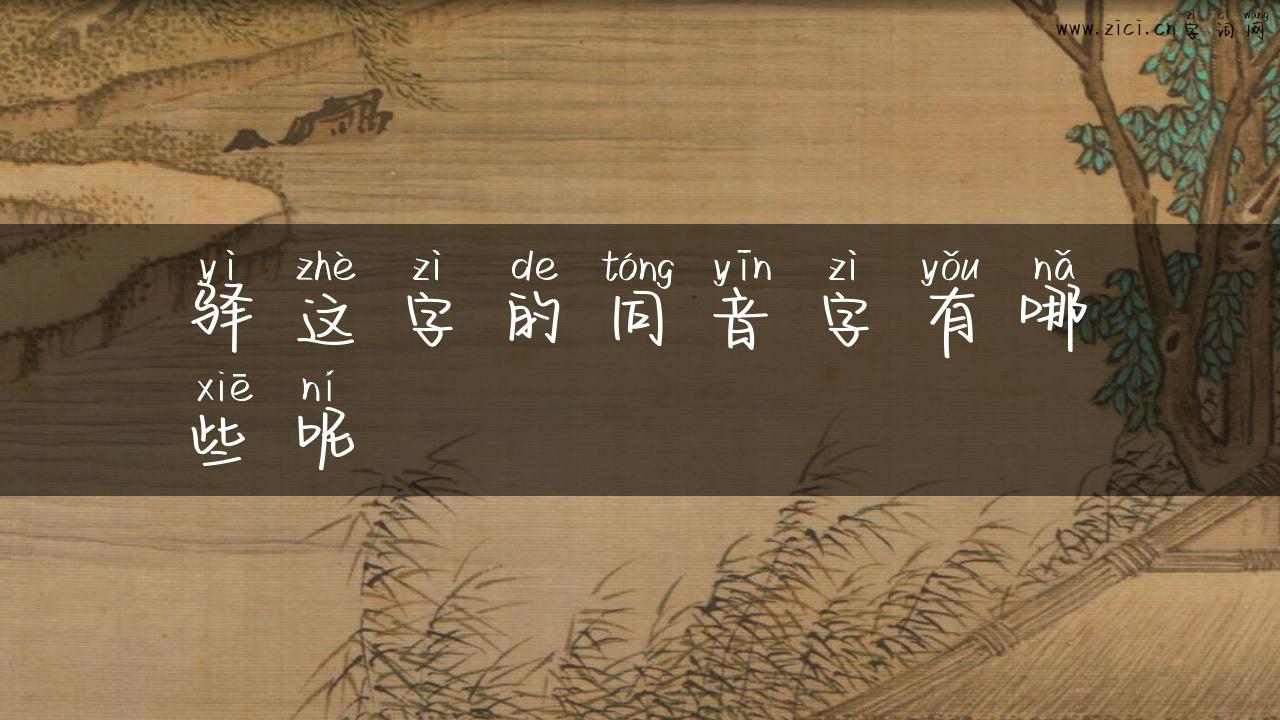 zì cí wǎng
www.zici.cn字词网
yì zhè zì de tóng yīn zì yǒu nǎ
驿这字的同音字有哪
xiē ní
些呢